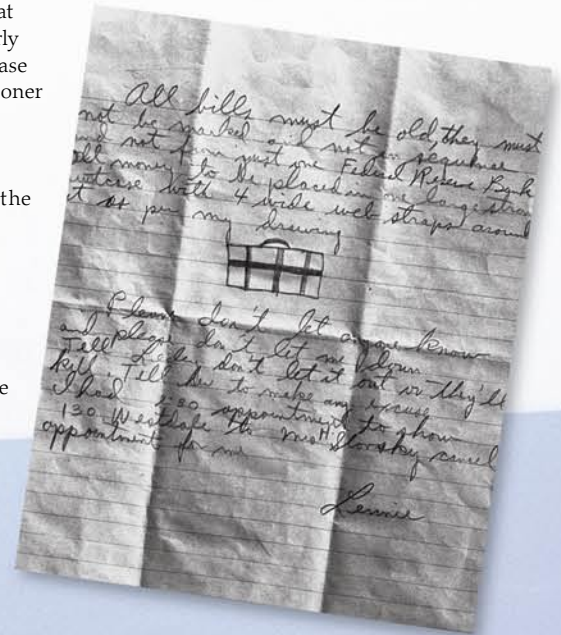 at
rly
ase
oner
the
e
All bills must be old, they must
not be marked and not in sequence
and not from just one Federal Reserve Bank
all money to be placed in one large strong
suitcase with 4 wide web straps around
it as per my drawing
Please don't let anyone know
and please don't let me down
Tell don't let it out or they'll
kill. Tell her to make any excuse
I had appointment to show
130 Westlake to Mrs cancel
appointment for me
Lennie